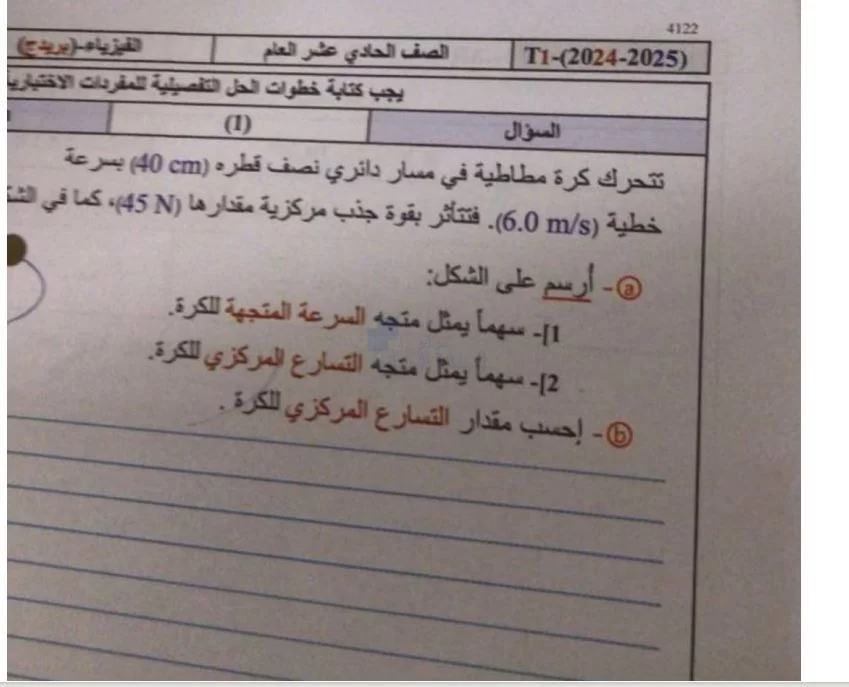 4122
T1-(2024-2025) الصف الحادي عشر العام الفيزياء-(بريدج)
يجب كتابة خطوات الحل التفصيلية للمفردات الاختيارية
السؤال (1)
تتحرك كرة مطاطية في مسار دائري نصف قطره (40 cm) بسرعة
خطية (6.0 m/s). فتتأثر بقوة جذب مركزية مقدارها (45 N)، كما في
ⓐ- أرسم على الشكل:
1]- سهماً يمثل متجه السرعة المتجهة للكرة.
2]- سهماً يمثل متجه التسارع المركزي للكرة.
ⓑ- إحسب مقدار التسارع المركزي للكرة .